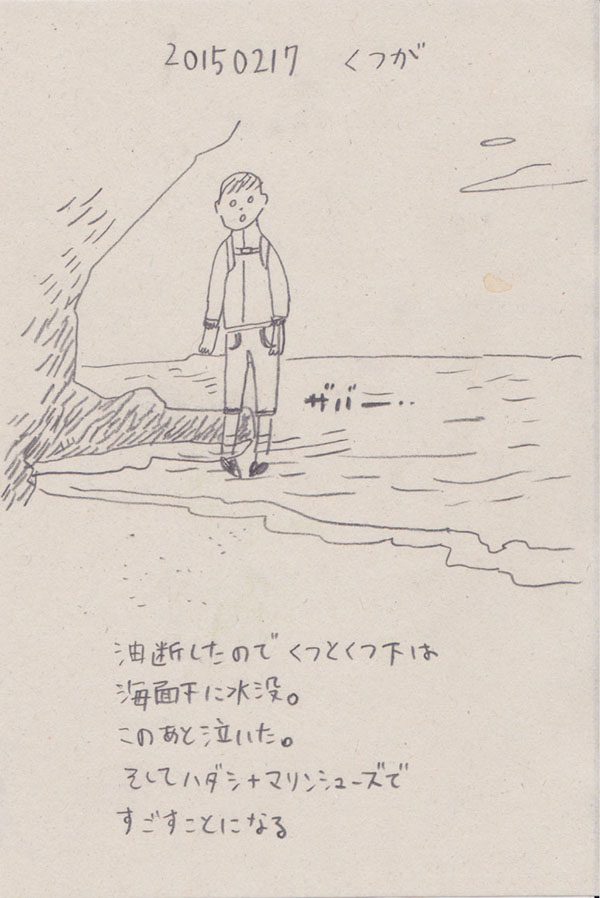 20150217 くつが
ザバー‥
油断したので くつとくつ下は
海面下に水没。
このあと泣いた。
そしてハダシ+マリンシューズで
すごすことになる